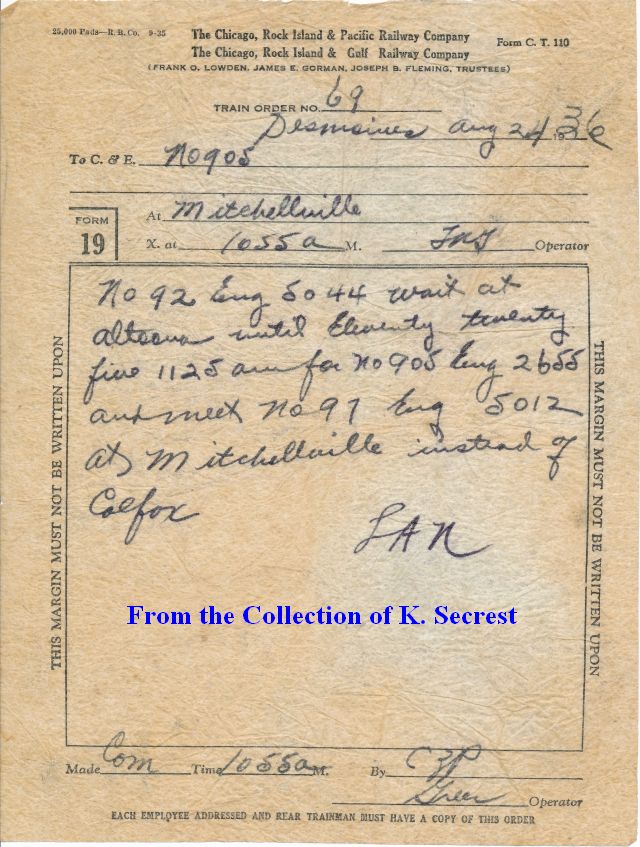 25,000 Pads—R. B. Co. 9-35
The Chicago, Rock Island & Pacific Railway Company
The Chicago, Rock Island & Gulf Railway Company
Form C. T. 110
(FRANK O. LOWDEN, JAMES E. GORMAN, JOSEPH B. FLEMING, TRUSTEES)
TRAIN ORDER NO. 69
Desmoines Aug 24 1936
To C. & E. No 905
FORM 19
At Mitchellville
X. at 1055a M. Operator
No 92 Eng 5044 wait at
altoona until Eleventy twenty
five 1125 am for No 905 Eng 2655
and meet No 97 Eng 5012
at Mitchellville instead of
Colfox
LAN
THIS MARGIN MUST NOT BE WRITTEN UPON
THIS MARGIN MUST NOT BE WRITTEN UPON
From the Collection of K. Secrest
Made Com Time 1055a M. By
Greer Operator
EACH EMPLOYEE ADDRESSED AND REAR TRAINMAN MUST HAVE A COPY OF THIS ORDER